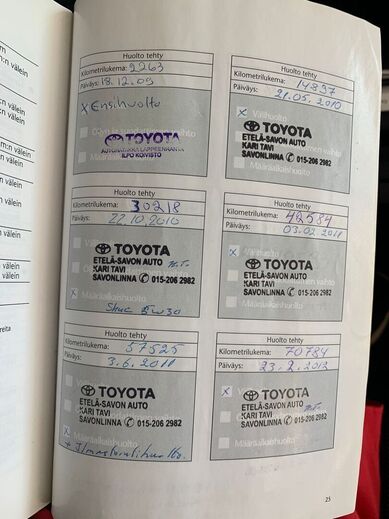 n:n välein
n välein
n välein
n välein
n:n välein
n välein
n välein
n välein
n välein
n välein
reita
Huolto tehty
Kilometrilukema: 2263
Päiväys: 18.12.09
x Ensihuolto
TOYOTA
AUTOMATKA LAPPEENRANTA
ILPO KOIVISTO
Määräaikaishuolto
Huolto tehty
Kilometrilukema: 14837
Päiväys: 21.05.2010
x Välihuolto
TOYOTA
ETELÄ-SAVON AUTO
KARI TAVI
SAVONLINNA 015-206 2982
Määräaikaishuolto
Huolto tehty
Kilometrilukema: 30218
Päiväys: 22.10.2010
TOYOTA
ETELÄ-SAVON AUTO
KARI TAVI
SAVONLINNA 015-206 2982
x Määräaikaishuolto
5w30
Huolto tehty
Kilometrilukema: 42584
Päiväys: 03.02.2011
x Välihuolto
TOYOTA
ETELÄ-SAVON AUTO
KARI TAVI
SAVONLINNA 015-206 2982
Määräaikaishuolto
Huolto tehty
Kilometrilukema: 57525
Päiväys: 3.6.2011
TOYOTA
ETELÄ-SAVON AUTO
KARI TAVI
SAVONLINNA 015-206 2982
x Määräaikaishuolto
Huolto tehty
Kilometrilukema: 70784
Päiväys: 23.2.2012
x
TOYOTA
ETELÄ-SAVON AUTO
KARI TAVI
SAVONLINNA 015-206 2982
Määräaikaishuolto
25